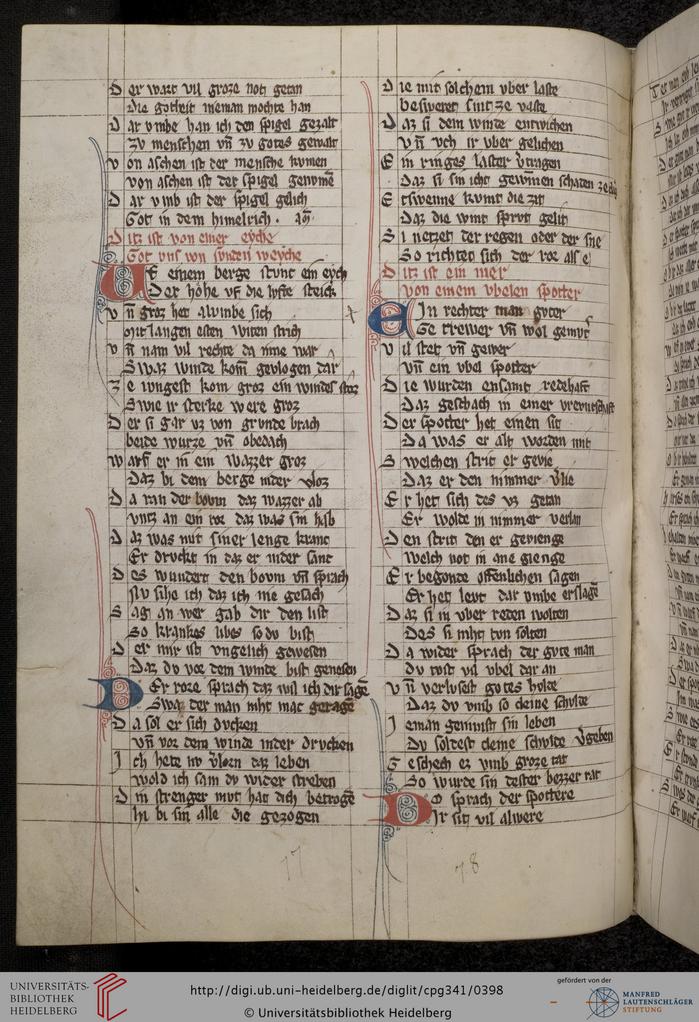 D er wart vil groze not getan
die gotheit nieman mochte han
D ar vmbe han ich den spigel gezalt
zv menschen vn̄ zv gotes gewalt
v on aschen ist der mensche kvmen
von aschen ist der spigel genvmē
D ar vmb ist der spigel gelich
Got in dem himelrich.
D itz ist von einer eyche
Got vns von svnden weyche
E einem berge stvnt ein eych
Der hohe vf die lvfte steich
v n̄ groz her alvmbe sich
mit langen esten witen strich
v n̄ nam vil rechte da inne war
Swaz winde kom̄ gevlogen dar
z e ivngest kom groz ein windes stoz
Swie ir sterke were groz
D er si gar vz von grvnde brach
beide wurze vn̄ obedach
w arf er in ein wazzer groz
Daz bi dem berge nider vloz
D a ran der bovm daz wazzer ab
vntz an ein ror daz was sin hab
D az was mit siner lenge kranc
Er drvckt in daz er nider sanc
D es wundert den bovm vn̄ sprach
Nv sihe ich daz ich nie gesach
S ag an wer gab dir den list
So krankes libes so dv bist
D er mir ist vngelich gewesen
Daz dv vor dem winde bist genesen
D Er rore sprach daz wil ich dir sagē
Swaz der man niht mac getragē
D a sol er sich drvcken
vn̄ vor dem winde nider drvcken
I ch hete nv vlorn daz leben
wold ich sam dv wider streben
D in strenger mvt hat dich betrogē
hi bi sin alle die gezogen
D ie mit solchem vber laste
besweret sint ze vaste
D az si dem winde entwichen
vn̄ vch ir vber gelichen
E in ringes laster vtragen
Daz si sin icht gewinnen schaden
E tswenne kvmt die zit
Daz die wint sprvt gelit
S i netzet der regen oder der sne
So richten sich der ror als e
D itz ist ein mer
von einem vbelen spotter
E In rechter man gvter
Getrewer vn̄ wol gemvt
v il stet vn̄ gewer
vn̄ ein vbel spotter
D ie wurden ensamt redehaft
Daz geschach in einer vrevntschaft
D er spotter het einen sit
Da was er alt worden mit
S welchen strit er gevie
Daz er den nimmer vlie
E r het sich des vz getan
Er wolde in nimmer verlan
D en strit den er gevienge
welch not in ane gienge
E r begonde offenlichen sagen
Er het levt dar vmbe erslagē
D az si in vber reden wolten
Des si niht tvn solten
D a wider sprach der gvte man
dv tvst vil vbel dar an
v n̄ verlvsest gotes hvlde
Daz dv vmb so cleine schvlde
I eman genimst sin leben
Dv soltest cleine schvlde vgeben
G eschech ez vmb groze tat
So wurde sin dester bezzer rat
D O sprach der spottere
Ir sit vil alwere
77
78
UNIVERSITÄTS-
BIBLIOTHEK
HEIDELBERG
http://digi.ub.uni-heidelberg.de/diglit/cpg341/0398
© Universitätsbibliothek Heidelberg
gefördert von der
MANFRED
LAUTENSCHLÄGER
STIFTUNG